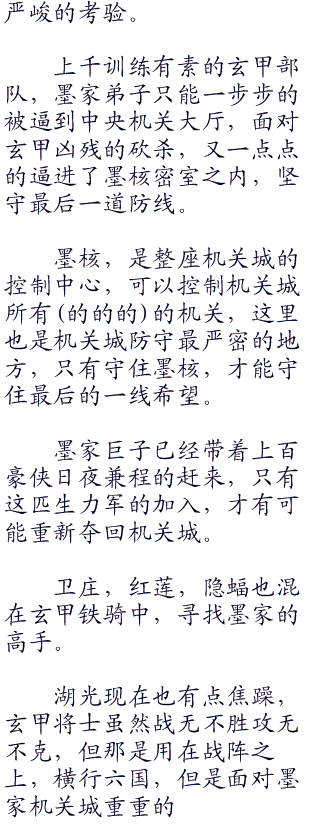 严峻的考验。
上千训练有素的玄甲部
队，墨家弟子只能一步步的
被逼到中央机关大厅，面对
玄甲凶残的砍杀，又一点点
的逼进了墨核密室之内，坚
守最后一道防线。
墨核，是整座机关城的
控制中心，可以控制机关城
所有(的的的)的机关，这里
也是机关城防守最严密的地
方，只有守住墨核，才能守
住最后的一线希望。
墨家巨子已经带着上百
豪侠日夜兼程的赶来，只有
这匹生力军的加入，才有可
能重新夺回机关城。
卫庄，红莲，隐蝠也混
在玄甲铁骑中，寻找墨家的
高手。
湖光现在也有点焦躁，
玄甲将士虽然战无不胜攻无
不克，但那是用在战阵之
上，横行六国，但是面对墨
家机关城重重的